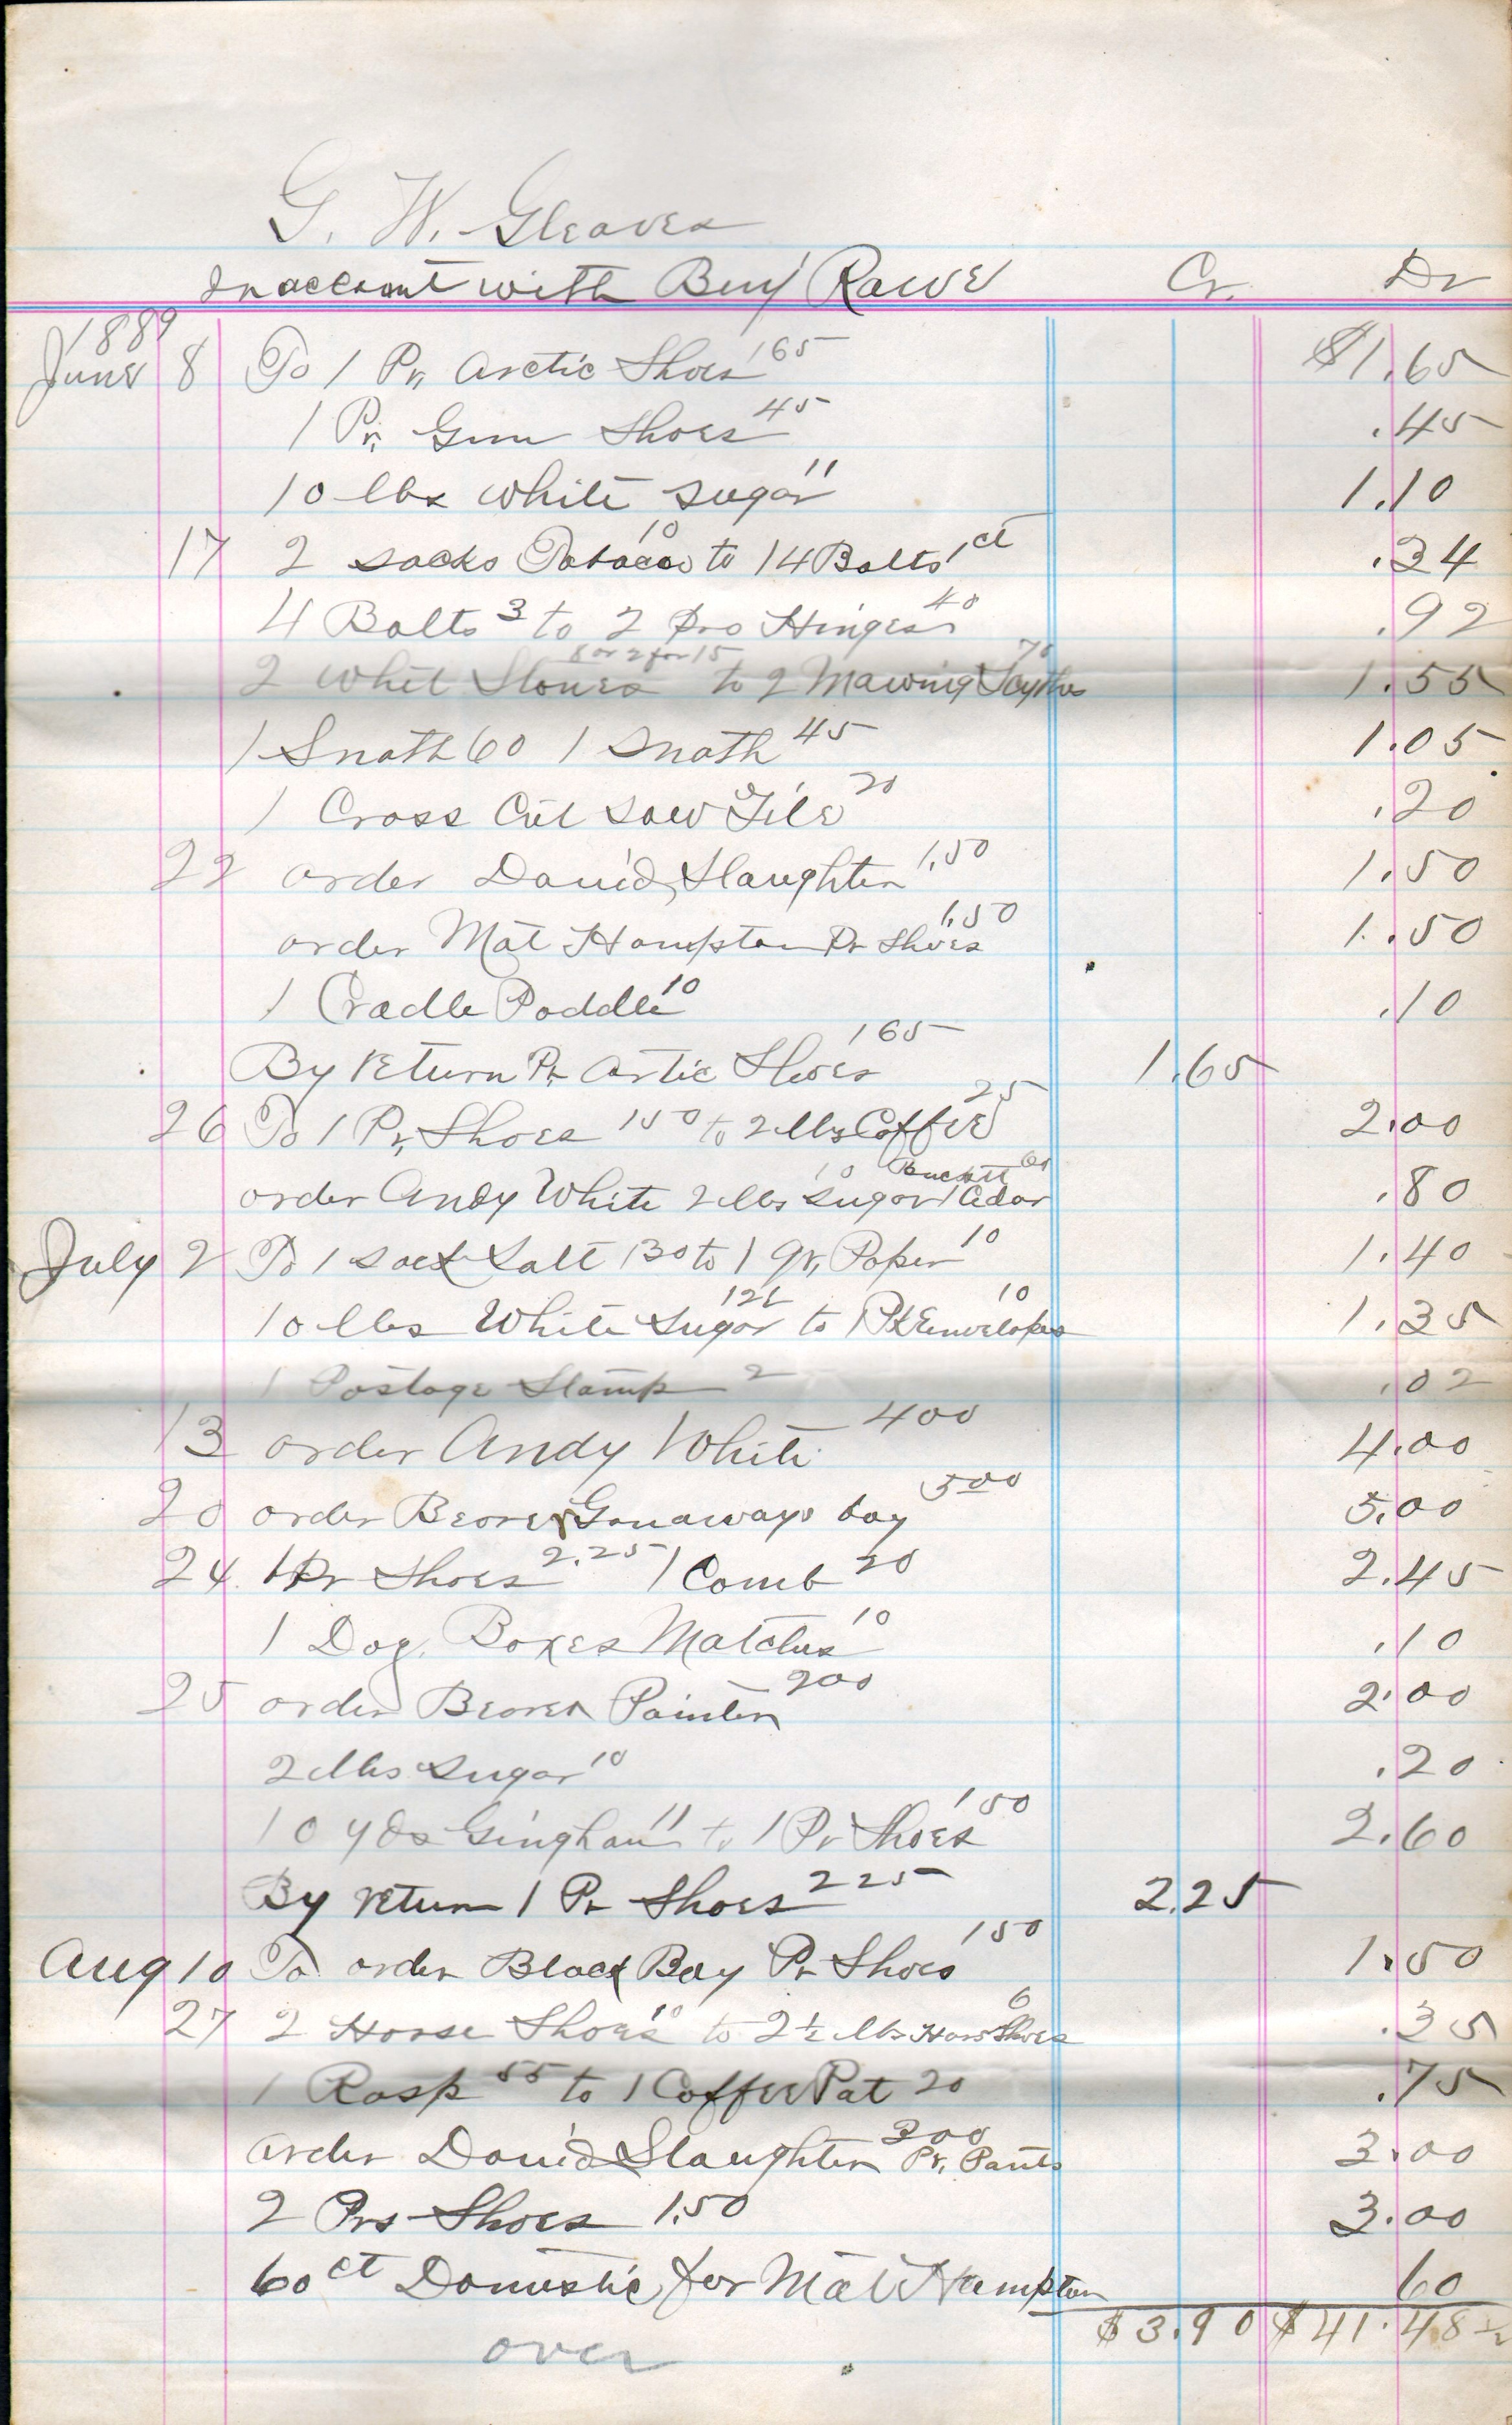 G. W. Gleaves
In account with Benj Rowe Cr. Dr
1889
June 8 To 1 Pr, Arctic Shoes 165 $1.65
1 Pr, Gum Shoes 45 .45
10 lbs White Sugar 11 1.10
17 2 sacks Tobacco 10 to 14 Bolts 1ct .34
4 Bolts 3 to 2 prs Hinges 40 .92
2 Whet Stones 8 or 2 for 15 to 2 Mawing Scythes 70 1.55
1 Snath 60 1 Snath 45 1.05
1 Cross Cut Saw File 20 .20
22 order David Slaughter 1.50 1.50
order Mat Hampton Pr Shoes 1.50 1.50
1 Cradle Poddle 10 .10
By return Pr Artic Shoes 165 1.65
26 To 1 Pr, Shoes 150 to 2 lbs Coffee 25 2.00
order Andy White 2 lbs Sugar 10 1 Cedar Buckett 60 .80
July 2 To 1 sack Salt 130 to 1 qr, Paper 10 1.40
10 lbs White Sugar 12½ to 1 Pk Envelopes 10 1.35
1 Postage Stamp 2 .02
13 order Andy White 400 4.00
20 order Beorer Ganaways boy 500 5.00
24 1 Pr Shoes 2.25 1 Comb 20 2.45
1 Doz. Boxes Matches 10 .10
25 order Beorer Painter 200 2.00
2 lbs Sugar 10 .20
10 yds Gingham 11 to 1 Pr Shoes 150 2.60
By return 1 Pr Shoes 225 2.25
Aug 10 To order Black Boy Pr Shoes 150 1.50
27 2 Horse Shoes 10 to 2½ lbs Hors Shoes 6 .35
1 Rasp 55 to 1 Coffee Pat 20 .75
order David Slaughter 300 Pr, Pants 3.00
2 Prs Shoes 1.50 3.00
60ct Domestic for Mat Hampton 60
$3.90 $41.48½
over